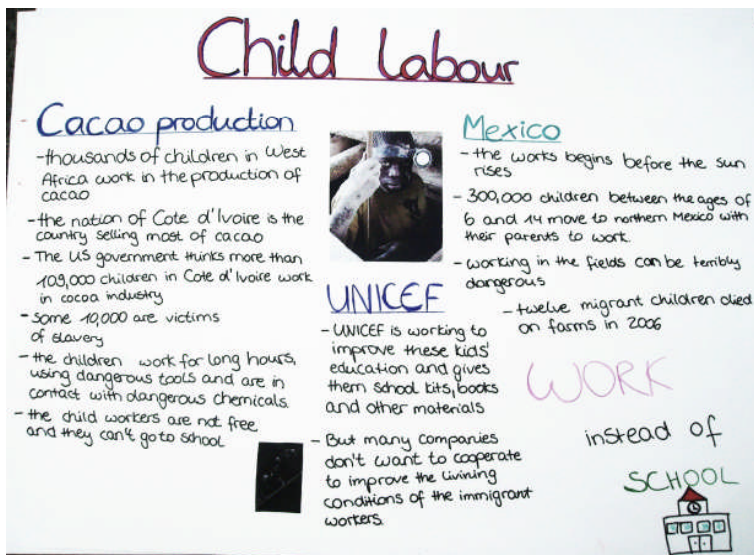 Child Labour
Cacao production
-thousands of children in West
Africa work in the production of
cacao
-the nation of Cote d'Ivoire is the
country selling most of cacao
- The US government thinks more than
109,000 children in Cote d'Ivoire work
in cocoa industry
- some 10,000 are victims
of slavery
- the children work for long hours,
using dangerous tools and are in
contact with dangerous chemicals.
- the child workers are not free
and they can't go to school
UNICEF
- UNICEF is working to
improve these kids'
education and gives
them school kits, books
and other materials
- But many companies
don't want to cooperate
to improve the livining
conditions of the immigrant
workers.
Mexico
- the works begins before the sun
rises
- 300,000 children between the ages of
6 and 14 move to northern Mexico with
their parents to work.
- working in the fields can be terribly
dangerous
- twelve migrant children died
on farms in 2006
WORK
instead of
SCHOOL